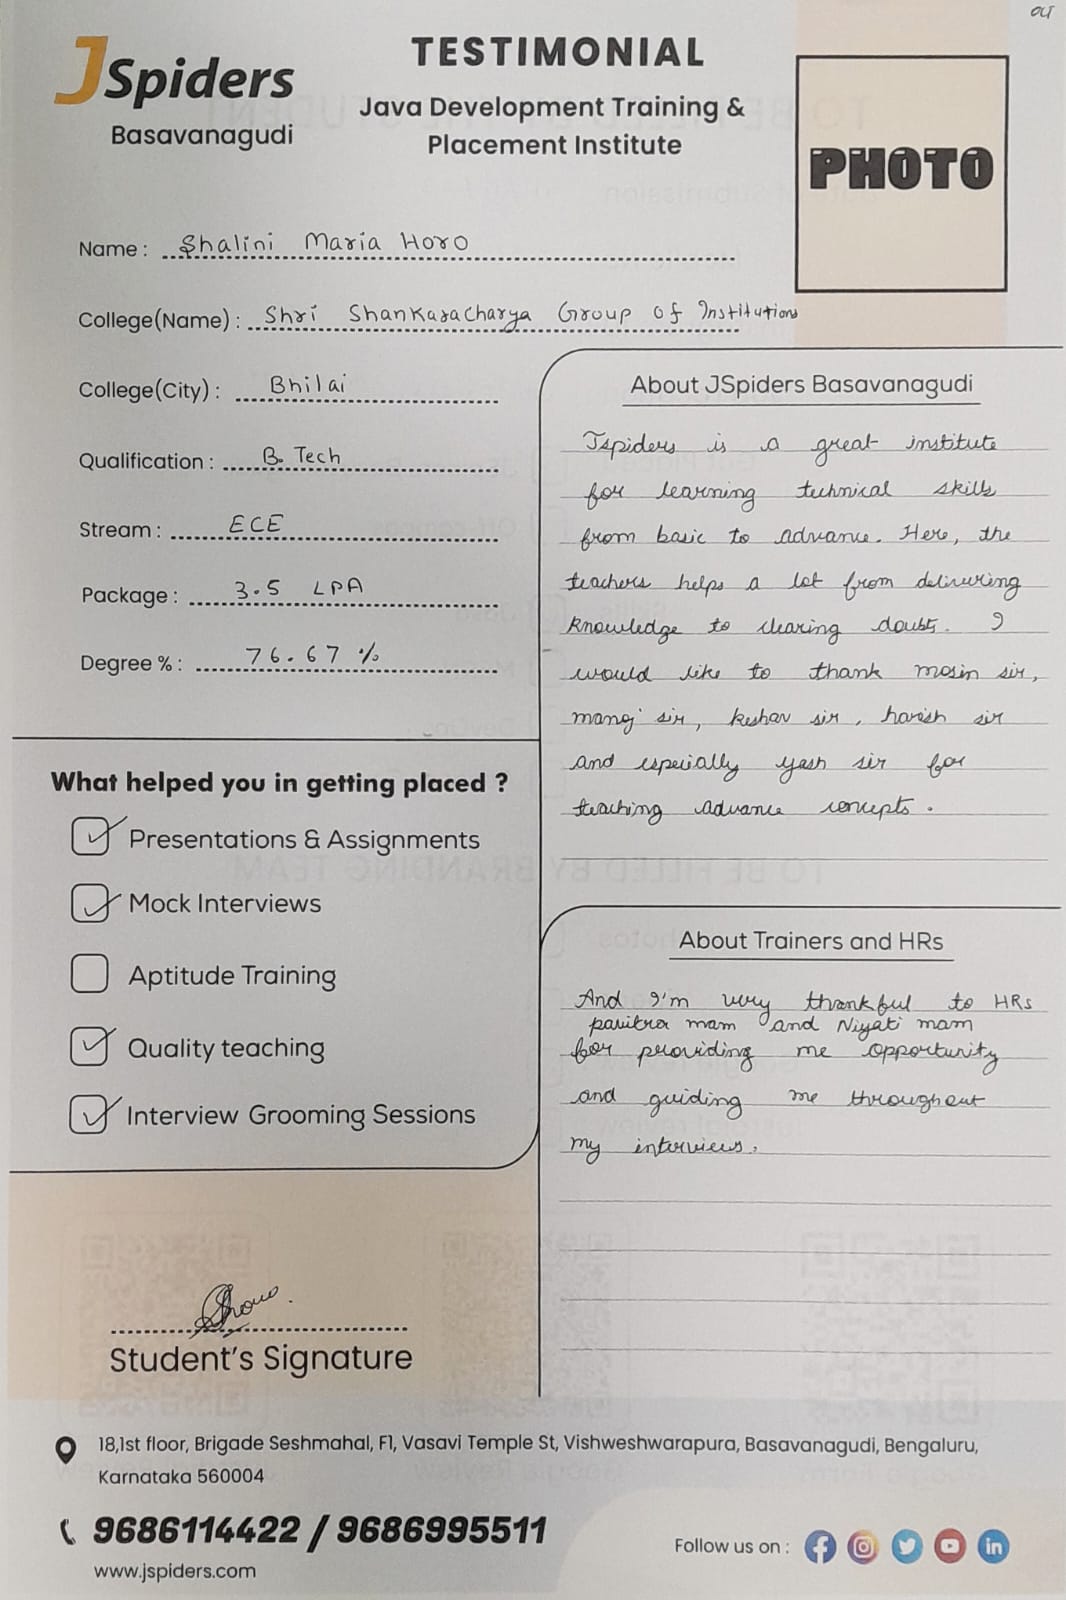 OLT
JSpiders
Basavanagudi
TESTIMONIAL
Java Development Training &
Placement Institute
PHOTO
Name : Shalini Maria Horo
College(Name) : Shri Shankaracharya Group of Institutions
College(City) : Bhilai
Qualification : B. Tech
Stream : ECE
Package : 3.5 LPA
Degree % : 76.67 %
What helped you in getting placed ?
Presentations & Assignments
Mock Interviews
Aptitude Training
Quality teaching
Interview Grooming Sessions
About JSpiders Basavanagudi
Jspiders is a great institute
for learning technical skills
from basic to advance. Here, the
teachers helps a lot from delivering
knowledge to clearing doubts. I
would like to thank mosin sir,
manoj sir, keshav sir, harish sir
and especially yash sir for
teaching advance concepts.
About Trainers and HRs
And I'm very thankful to HRs
pavitra mam and Niyati mam
for providing me opportunity
and guiding me throughout
my interviews.
Student's Signature
18,1st floor, Brigade Seshmahal, F1, Vasavi Temple St, Vishweshwarapura, Basavanagudi, Bengaluru,
Karnataka 560004
9686114422 / 9686995511
www.jspiders.com
Follow us on :